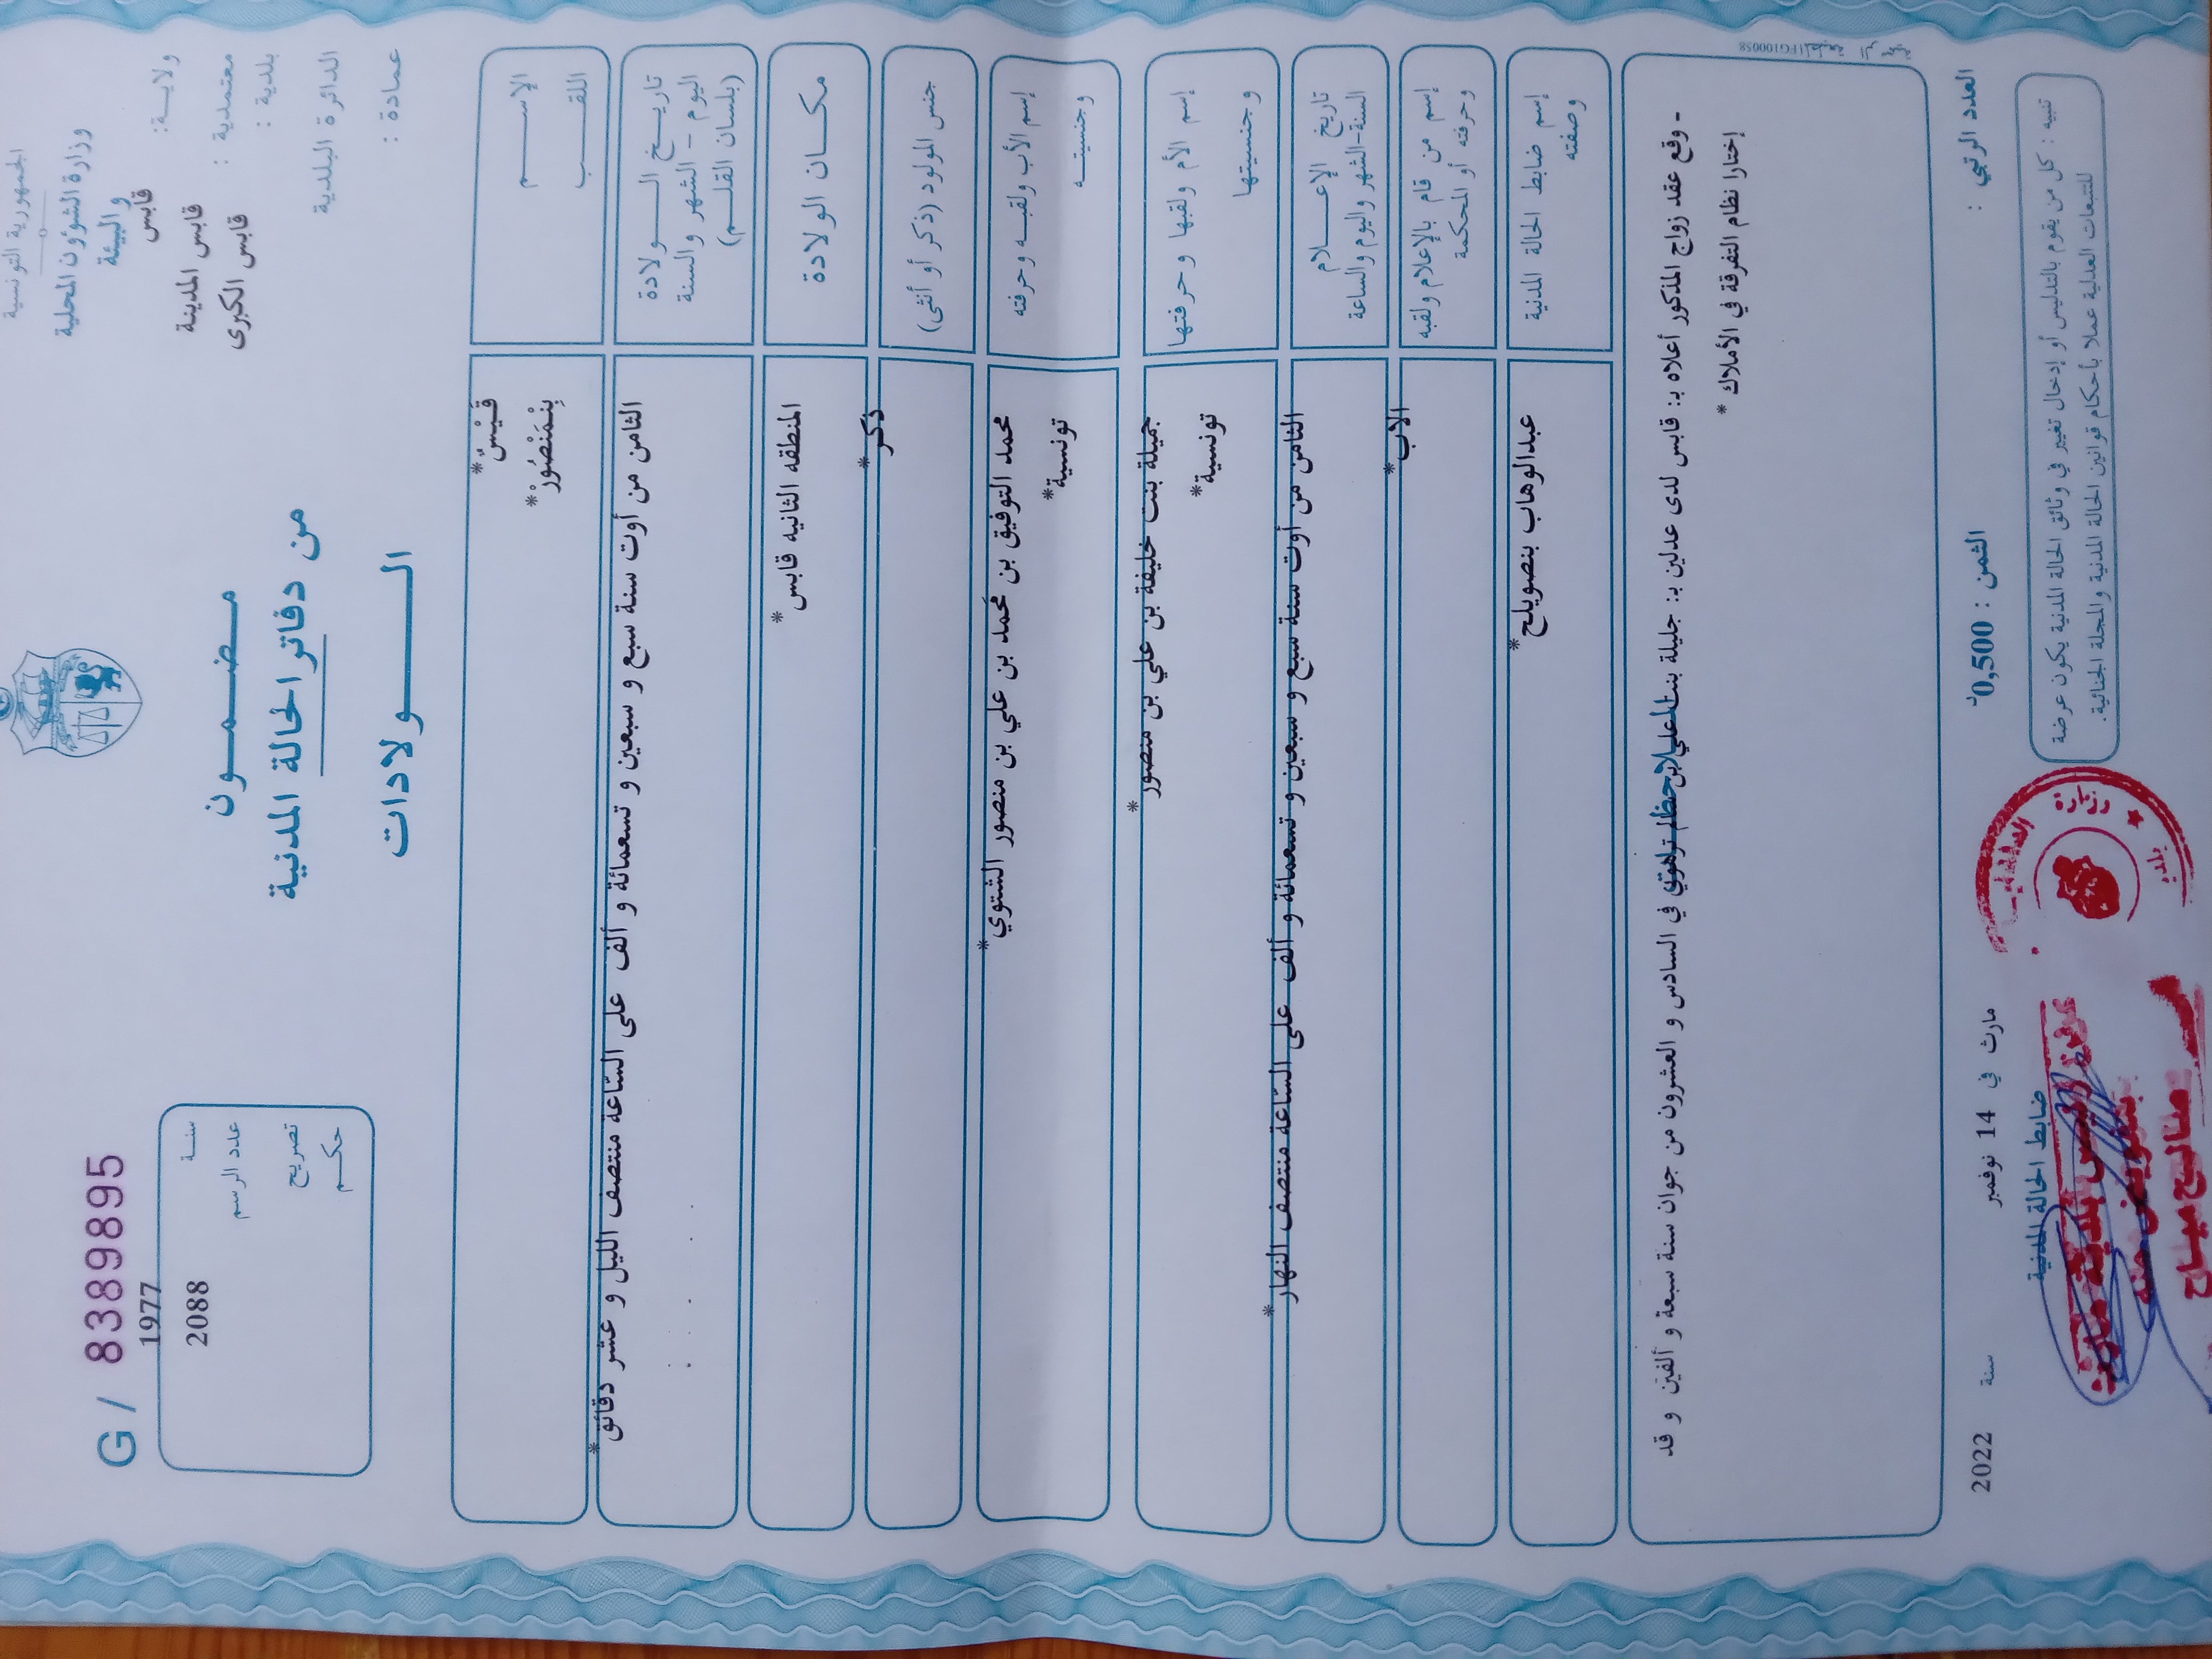 الجمهورية التونسية
وزارة الشؤون المحلية
والبيئة
ولاية: قابس
معتمدية : قابس المدينة
بلدية : قابس الكبرى
الدائرة البلدية
عمادة :
مضمون
من دفاتر الحالة المدنية
الولادات
G / 8389895
سنة 1977
عدد الرسم 2088
تصريح
حكم
الإسم قَيْسْ*
اللقب بِنْمَنْصُورْ*
تاريخ الولادة
اليوم - الشهر والسنة
(بلسان القلم)
الثامن من أوت سنة سبع و سبعين و تسعمائة و ألف على السّاعة منتصف الليل و عشر دقائق*
مكان الولادة المنطقه الثانيه قابس*
جنس المولود (ذكر أو أنثى) ذكر*
إسم الأب ولقبه وحرفته محمد التوفيق بن محمد بن علي بن منصور الشتوي*
وجنسيته تونسية*
إسم الأم ولقبها وحرفتها جميلة بنت خليفة بن علي بن منصور*
وجنسيتها تونسية*
تاريخ الإعلام
السنة-الشهر واليوم والساعة
الثامن من أوت سنة سبع و سبعين و تسعمائة و ألف على السّاعة منتصف النهار*
إسم من قام بالإعلام ولقبه الاب*
وحرفته أو المحكمة
إسم ضابط الحالة المدنية عبدالوهاب بنصويلح*
وصفته
- وقع عقد زواج المذكور أعلاه بـ: قابس لدى عدلين بـ: جليلة بنت في السادس و العشرون من جوان سنة سبعة و ألفين و قد
إختارا نظام التفرقة في الأملاك *
العدد الرتبي :
الثمن : 0,500د
مارث في 14 نوفمبر سنة 2022
ضابط الحالة المدنية
تنبيه : كل من يقوم بالتدليس أو إدخال تغيير في وثائق الحالة المدنية يكون عرضة
للتتبعات العدلية عملا بأحكام قوانين الحالة المدنية والمجلة الجنائية.
عن رئيس بلدية مارث
بتفويض منه